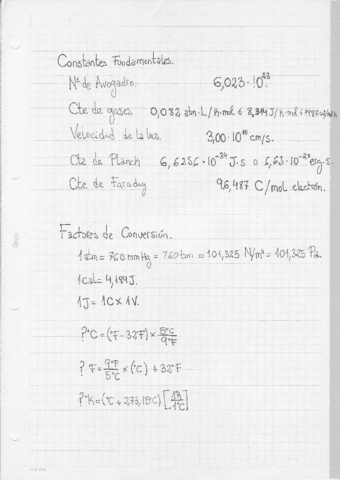 Constantes Fundamentales.
Nº de Avogadro. 6,023·10²³
Cte de gases 0,082 atm·L/K·mol ó 8,314 J/K·mol ó
Velocidad de la luz. 3,00·10¹⁰ cm/s.
Cte de Planch 6,6256·10⁻³⁴ J·s o 6,63·10⁻²⁷ erg·s.
Cte de Faraday 96,487 C/mol electrón.
Factores de Conversión.
1atm = 760 mmHg = 760 torr = 101,325 N/m² = 101,325 Pa.
1cal = 4,184J.
1J = 1C × 1V.
?ºC = (ºF - 32ºF) × 5ºC/9ºF
?ºF = 9ºF/5ºC × (ºC) + 32ºF
?ºK = (ºC + 273,15ºC) [1ºK/1ºC]